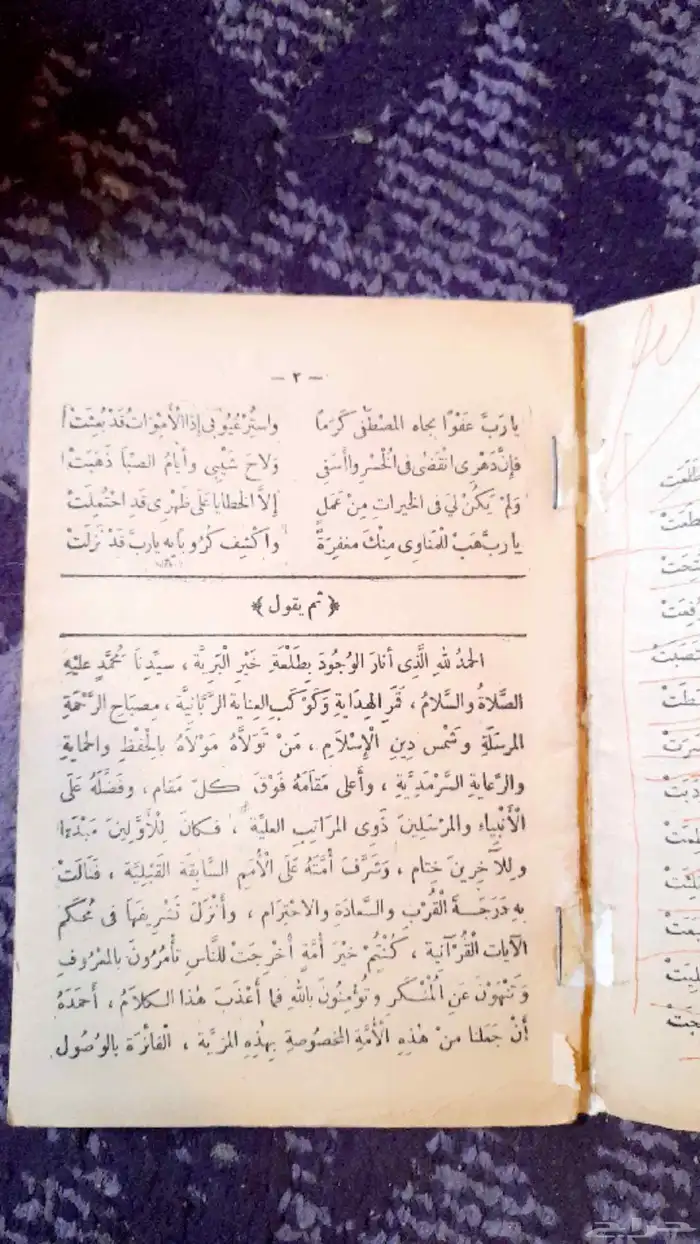 — ٢ —
يا رَبِّ عَفْوًا بجاه المصْطَفَى كَرَمًا واستُرْ عُيُوبِي إذا الْأَمْوَاتُ قَدْ بُعِثَتْ
فإنَّ دَهْرِى انْقَضَى فى الْخُسْرِ واأَسَفِى وَلاحَ شَيْبِى وأيامُ الصِّبَا ذَهَبَتْ
وَلَمْ يَكُنْ لِي فى الخيراتِ مِنْ عَمَلٍ إلَّا الخطايا عَلَى ظَهْرِى قَدِ احْتُمِلَتْ
يا ربِّ هَبْ للْمَناوِى مِنْكَ مغفِرَةً واكْشِف كُرُوبًا بِهِ ياربِّ قَدْ نَزَلَتْ
﴿ ثم يقول ﴾
الحمدُ للهِ الَّذِى أنارَ الوُجُودَ بِطَلْعَةِ خَيْرِ الْبَرِيَّةِ ، سيِّدِنَا مُحَمَّدٍ عليْهِ
الصَّلاةُ والسَّلامُ ، قَمَرِ الهِدَايَةِ وَكَوْكَبِ العِنايةِ الرَّبَّانِيَّة ، مِصبَاحِ الرَّحْمَةِ
المرسَلَةِ وشَمْسِ دِينِ الْإِسْلَامِ ، مَنْ تَوَلَّاهُ مَوْلَاهُ بالْحِفْظِ والحمايةِ
والرِّعايةِ السَّرْمَدِيَّةِ ، وأَعلى مَقَامَهُ فَوْقَ كلِّ مَقام ، وفَضَّلَهُ عَلَى
الْأَنْبِيَاءِ والمرْسَلِينَ ذَوِى المرَاتِبِ العليَّةِ ، فكانَ لِلْأَوَّلِينَ مَبْدَءًا
ولِلْآخِرِينَ خِتام ، وَشَرَّفَ أُمَّتَهُ عَلَى الْأُمَمِ السَّابِقَةِ القَبْلِيَّة ، فَنَالَتْ
بِهِ دَرَجَةَ الْقُرْبِ والسَّعادَةِ والاحْتِرَام ، وأَنْزَلَ تَشْرِيفَهَا فى مُحْكَمِ
الآياتِ الْقُرْآنِية ، كُنْتُمْ خَيْرَ أُمَّةٍ أُخْرِجَتْ للنَّاسِ تأْمُرُونَ بالمعْرُوفِ
وَتَنْهَوْنَ عَنِ الْمُنْكَرِ وتُؤْمِنُونَ بالله فما أَعْذَبَ هٰذا الكلامُ ، أحْمَدُهُ
أَنْ جَعَلنا مِنْ هٰذِهِ الْأُمَّةِ المخصُوصةِ بِهٰذِهِ المزِيَّة ، الْفَائزَة بالوُصُول
حراج